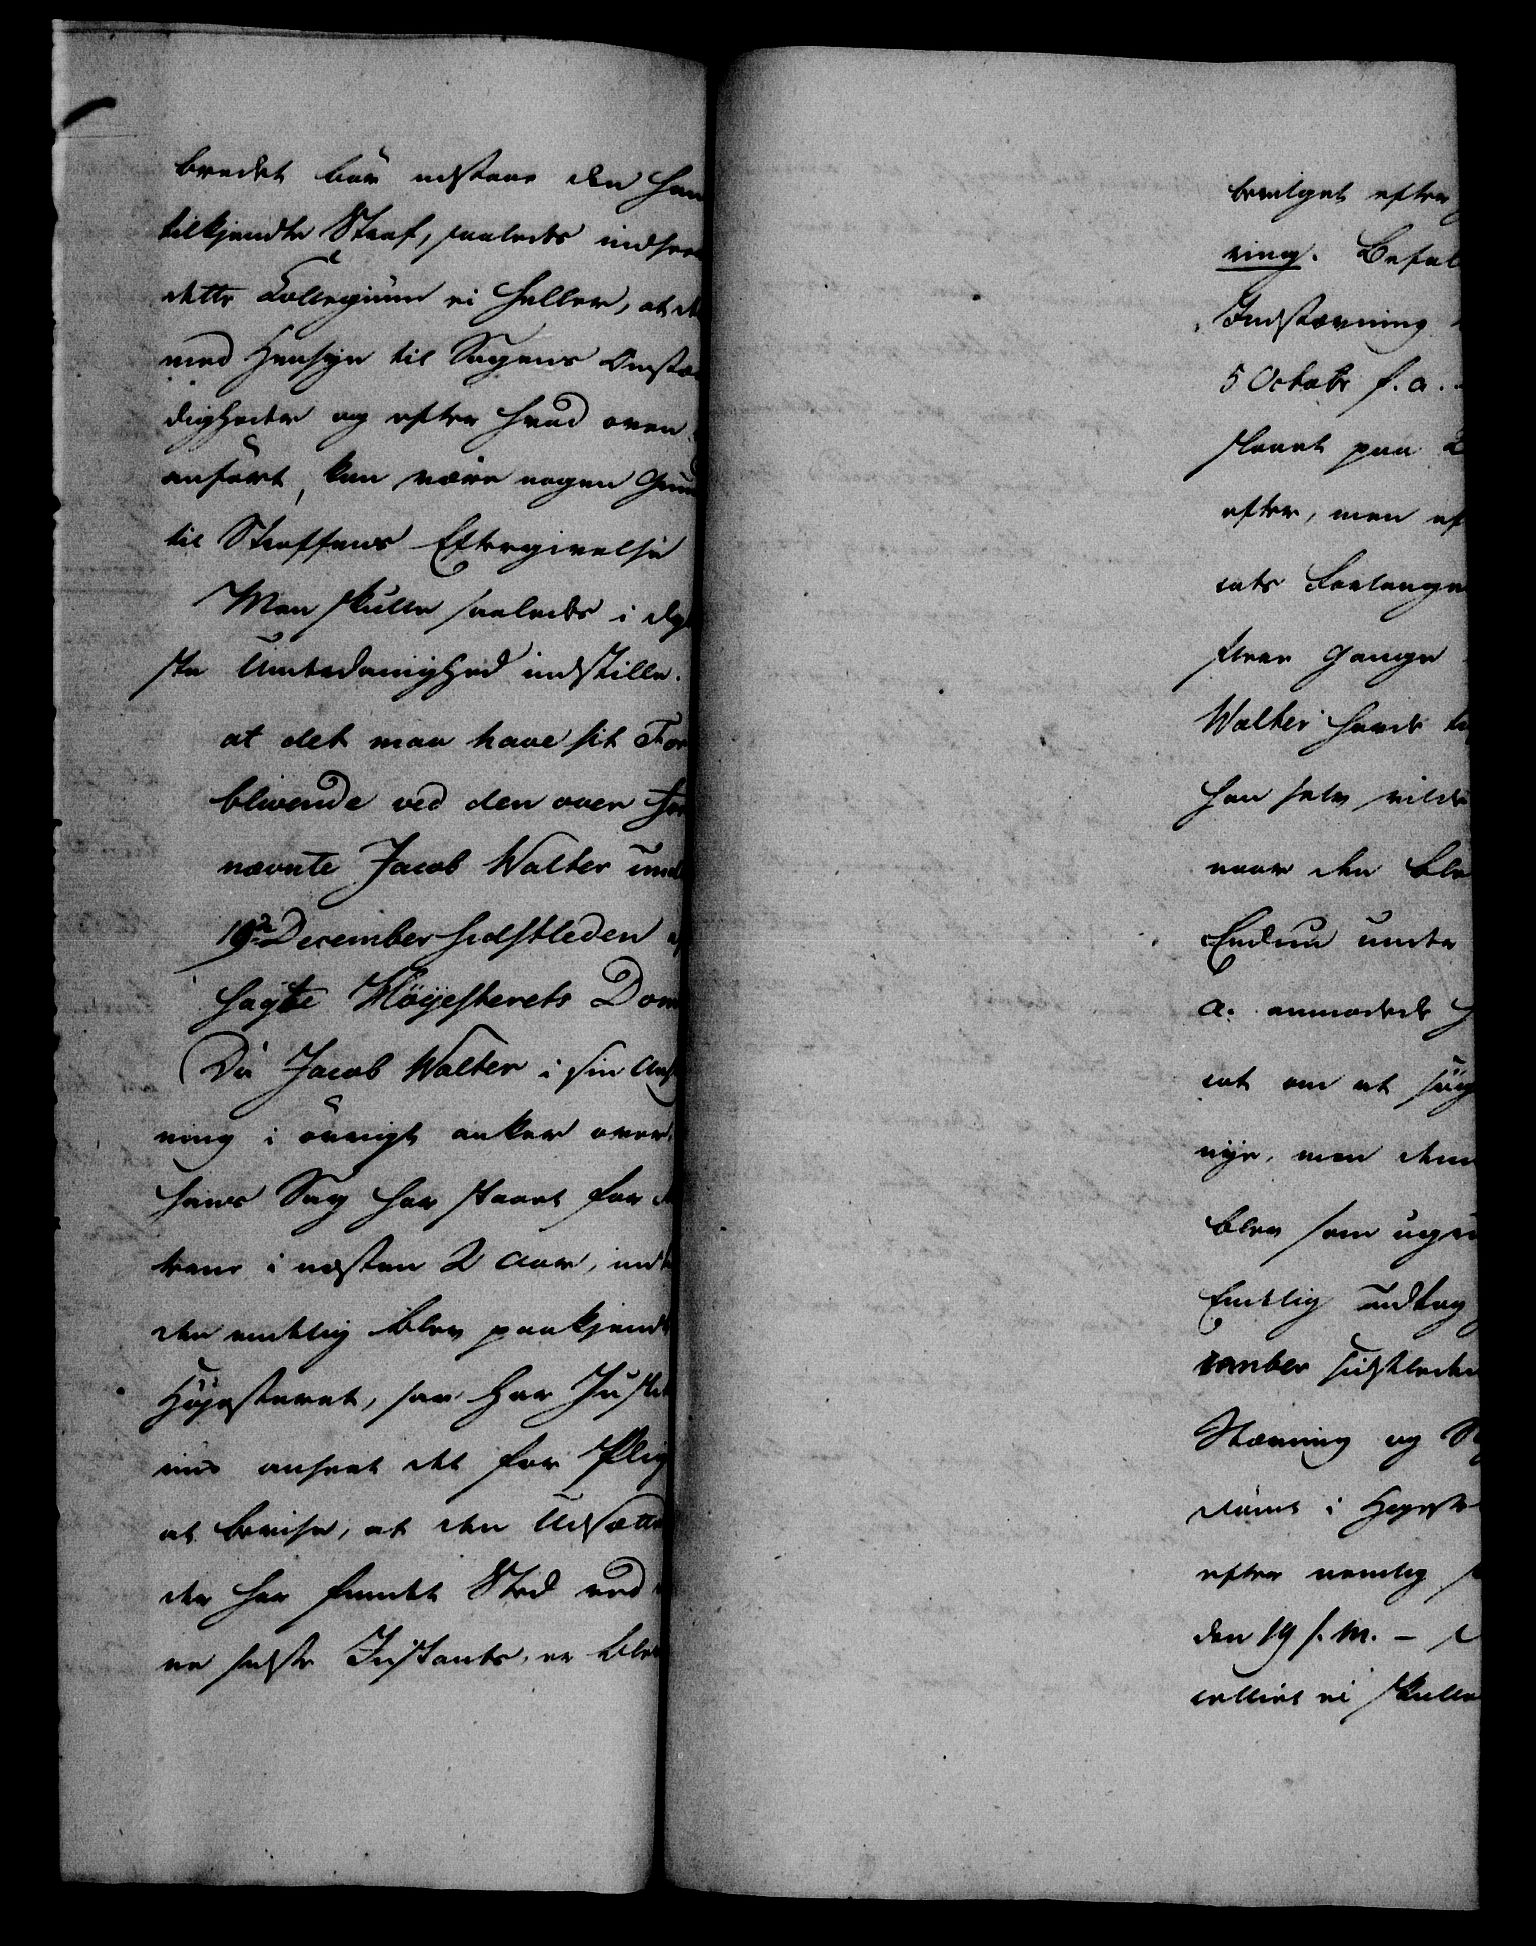 brudet bør udstaae den ham
tilkjendte Straf, saaledes indseer
dette Collegium ei heller, at der
med Hensyn til Sagens Omstæn
digheder og efter hvad oven
anført, kan være nogen Grund
til Straffens Eftergivelse
Man skulle saaledes i dyb
ste Underdanighed indstille.
at det maa have sit For
blivende ved den over for
nævnte Jacob Walter und
19de December sidstleden af
sagte Höyesterets Dom
Da Jacob Walter i sin Ansø
ning i øvrigt anker over,
hans Sag har staaet for
i næsten 2 Aar, ind
den endelig blev paakjendt
Höyesteret, saa har Justit
anseet det for Pligt
at bevise, at den Udsættelse
der har fundet Sted ved
ne sidste Instants, er blev
bevilget efter
ring. Befal
Indstævning
5 October f. a.
slaaet paa
efter, men ef
cats Forlange
flere Gange
Walter havde
han selv vilde
naar den blev
Endnu under
a. anmodede H
cat om at
nye, men denn
blev som ugr
Endelig udtog
cember sidstleden
Stævning og
dömt i Høyeste
efter nemlig
den 19 s. M. –
celliet ei skulle